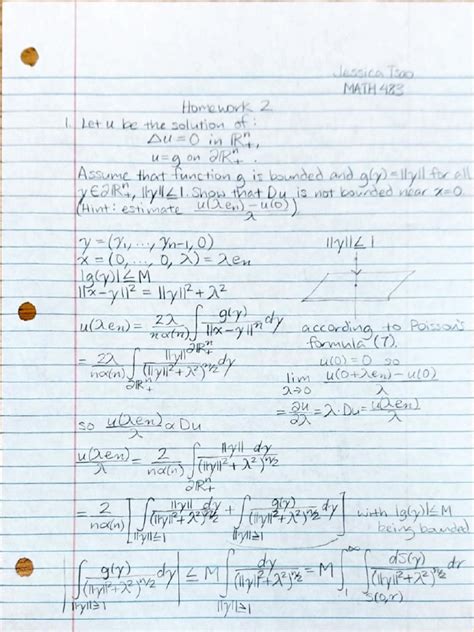 Jessica Tsao
MATH 483
Homework 2
1. Let u be the solution of:
Δu = 0 in ℝⁿ₊,
u = g on ∂ℝⁿ₊.
Assume that function g is bounded and g(y) = ||y|| for all
y ∈ ∂ℝⁿ₊, ||y|| ≤ 1. Show that Du is not bounded near x=0.
(Hint: estimate (u(λeₙ) - u(0))/λ)
y = (y₁, ..., yₙ₋₁, 0)
||y|| ≤ 1
x = (0, ..., 0, λ) = λeₙ
|g(y)| ≤ M
||x-y||² = ||y||² + λ²
u(λeₙ) = 2λ/(nα(n)) ∫_∂ℝⁿ₊ g(y)/||x-y||ⁿ dy
according to Poisson's
formula (7).
= 2λ/(nα(n)) ∫_∂ℝⁿ₊ ||y||/(||y||²+λ²)^(n/2) dy
u(0) = 0 so
lim λ→0 (u(0+λeₙ) - u(0))/λ
= ∂u/∂λ = λ·Du = u(λeₙ)/λ
so u(λeₙ)/λ ∝ Du
u(λeₙ)/λ = 2/(nα(n)) ∫_∂ℝⁿ₊ ||y|| dy/(||y||²+λ²)^(n/2)
= 2/(nα(n)) [∫_||y||≤1 ||y||/(||y||²+λ²)^(n/2) dy + ∫_||y||≥1 g(y)/(||y||²+λ²)^(n/2) dy] with |g(y)| ≤ M
being bounded
|∫_||y||≥1 g(y)/(||y||²+λ²)^(n/2) dy| ≤ M ∫_||y||≥1 dy/(||y||²+λ²)^(n/2) = M ∫₁^∞ ∫_S(0,r) dS(y)/(||y||²+λ²)^(n/2) dr